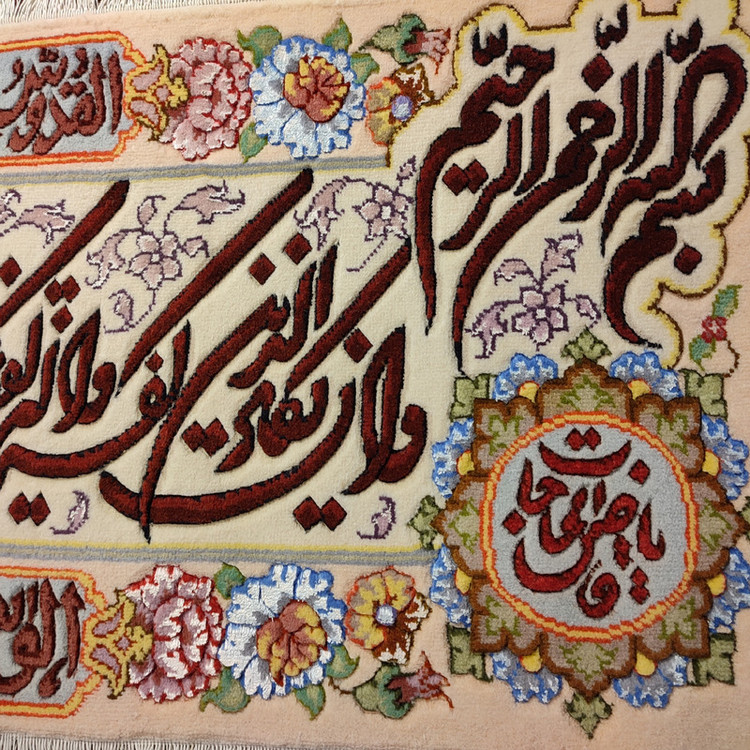 بسم الله الرحمن الرحیم
القدوس
وان یکاد الذین کفروا لیزلقونک
یا قاضی الحاجات